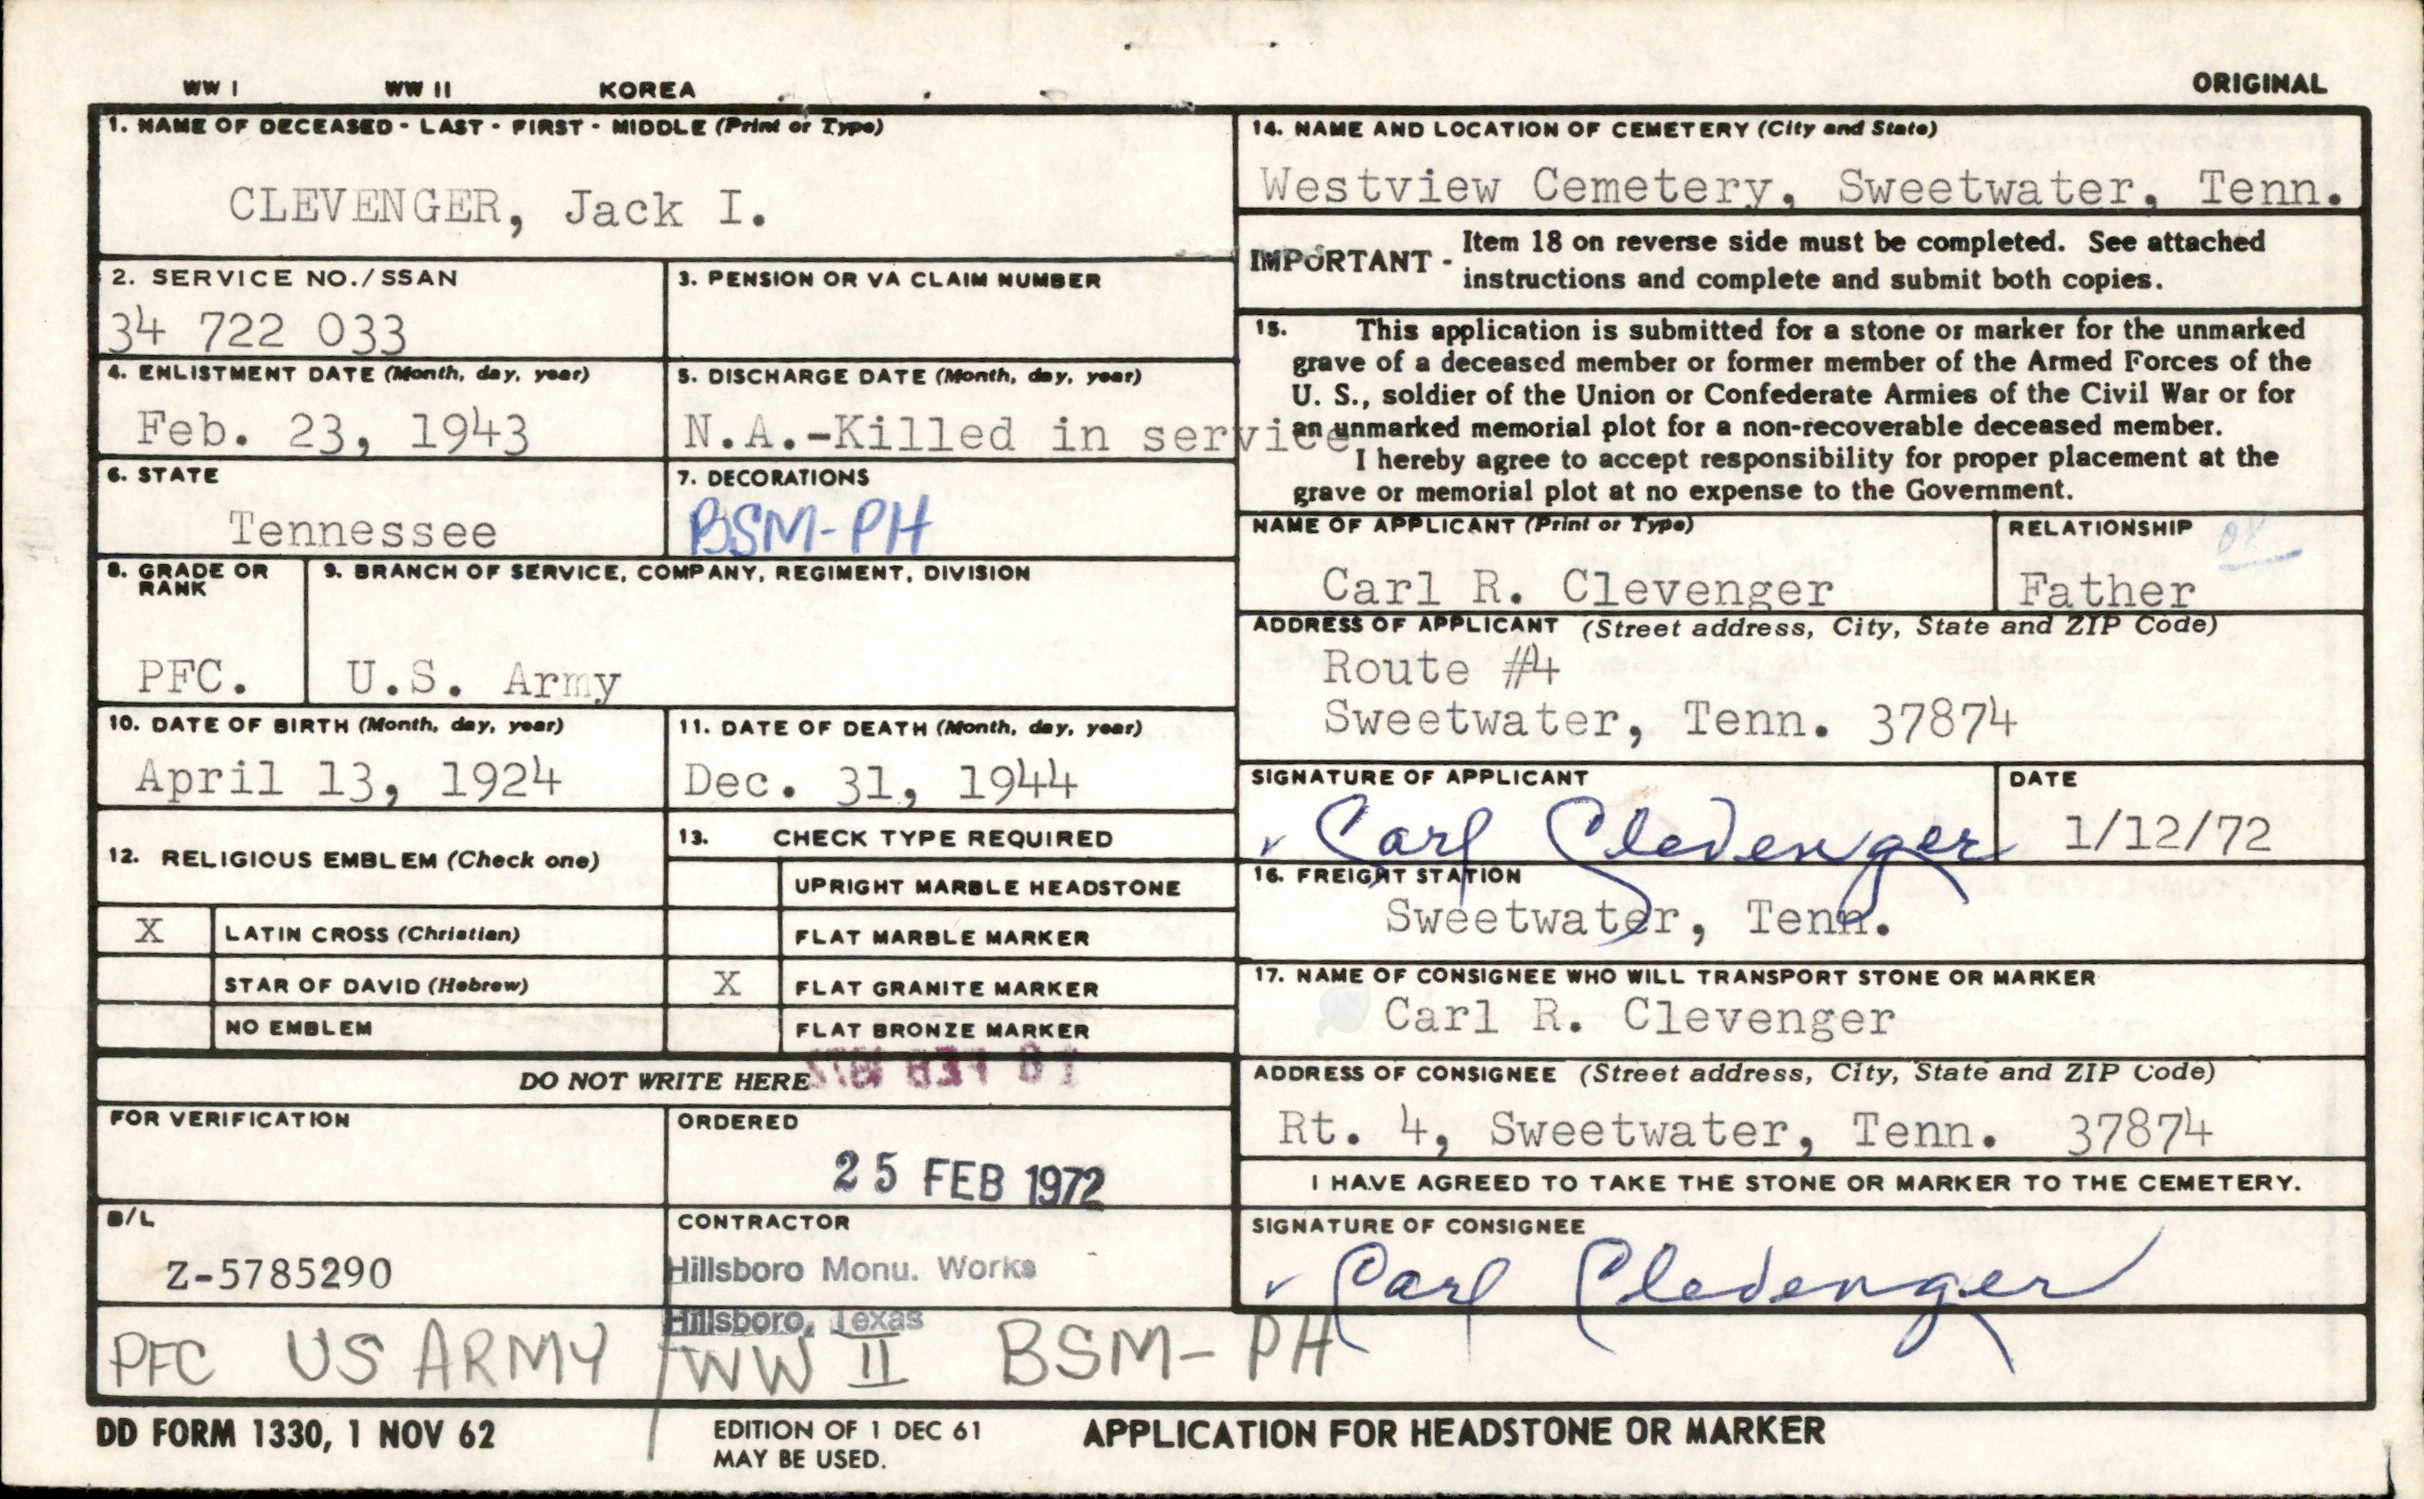 WW I WW II KOREA ORIGINAL
1. NAME OF DECEASED - LAST - FIRST - MIDDLE (Print or Type)
CLEVENGER, Jack I.
2. SERVICE NO./SSAN
34 722 033
3. PENSION OR VA CLAIM NUMBER
4. ENLISTMENT DATE (Month, day, year)
Feb. 23, 1943
5. DISCHARGE DATE (Month, day, year)
N.A.-Killed in service
6. STATE
Tennessee
7. DECORATIONS
BSM-PH
8. GRADE OR
RANK
PFC.
9. BRANCH OF SERVICE, COMPANY, REGIMENT, DIVISION
U.S. Army
10. DATE OF BIRTH (Month, day, year)
April 13, 1924
11. DATE OF DEATH (Month, day, year)
Dec. 31, 1944
12. RELIGIOUS EMBLEM (Check one)
X LATIN CROSS (Christian)
STAR OF DAVID (Hebrew)
NO EMBLEM
13. CHECK TYPE REQUIRED
UPRIGHT MARBLE HEADSTONE
FLAT MARBLE MARKER
X FLAT GRANITE MARKER
FLAT BRONZE MARKER
DO NOT WRITE HERE
FOR VERIFICATION
ORDERED
25 FEB 1972
B/L
Z-5785290
CONTRACTOR
Hillsboro Monu. Works
Hillsboro, Texas
PFC US ARMY / WW II BSM-PH
14. NAME AND LOCATION OF CEMETERY (City and State)
Westview Cemetery, Sweetwater, Tenn.
IMPORTANT - Item 18 on reverse side must be completed. See attached
instructions and complete and submit both copies.
15. This application is submitted for a stone or marker for the unmarked
grave of a deceased member or former member of the Armed Forces of the
U. S., soldier of the Union or Confederate Armies of the Civil War or for
an unmarked memorial plot for a non-recoverable deceased member.
I hereby agree to accept responsibility for proper placement at the
grave or memorial plot at no expense to the Government.
NAME OF APPLICANT (Print or Type)
Carl R. Clevenger
RELATIONSHIP
Father
ADDRESS OF APPLICANT (Street address, City, State and ZIP Code)
Route #4
Sweetwater, Tenn. 37874
SIGNATURE OF APPLICANT
Carl Clevenger
DATE
1/12/72
16. FREIGHT STATION
Sweetwater, Tenn.
17. NAME OF CONSIGNEE WHO WILL TRANSPORT STONE OR MARKER
Carl R. Clevenger
ADDRESS OF CONSIGNEE (Street address, City, State and ZIP Code)
Rt. 4, Sweetwater, Tenn. 37874
I HAVE AGREED TO TAKE THE STONE OR MARKER TO THE CEMETERY.
SIGNATURE OF CONSIGNEE
Carl Clevenger
DD FORM 1330, 1 NOV 62
EDITION OF 1 DEC 61
MAY BE USED.
APPLICATION FOR HEADSTONE OR MARKER